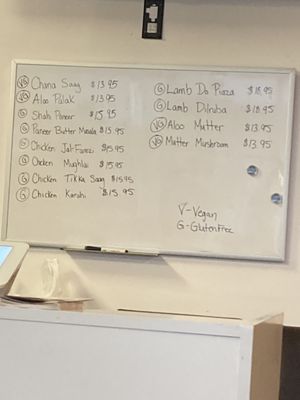 VG Chana Saag $13.95
VG Aloo Palak $13.95
G Shahi Paneer $15.95
G Paneer Butter Masala $15.95
G Chicken Jal-Farezi $15.95
G Chicken Mughlai $15.95
G Chicken Tikka Saag $15.95
G Chicken Karahi $15.95
G Lamb Do Piaza $18.95
G Lamb Dilruba $18.95
VG Aloo Mutter $13.95
VG Mutter Mushroom $13.95
V-Vegan
G-Gluten Free